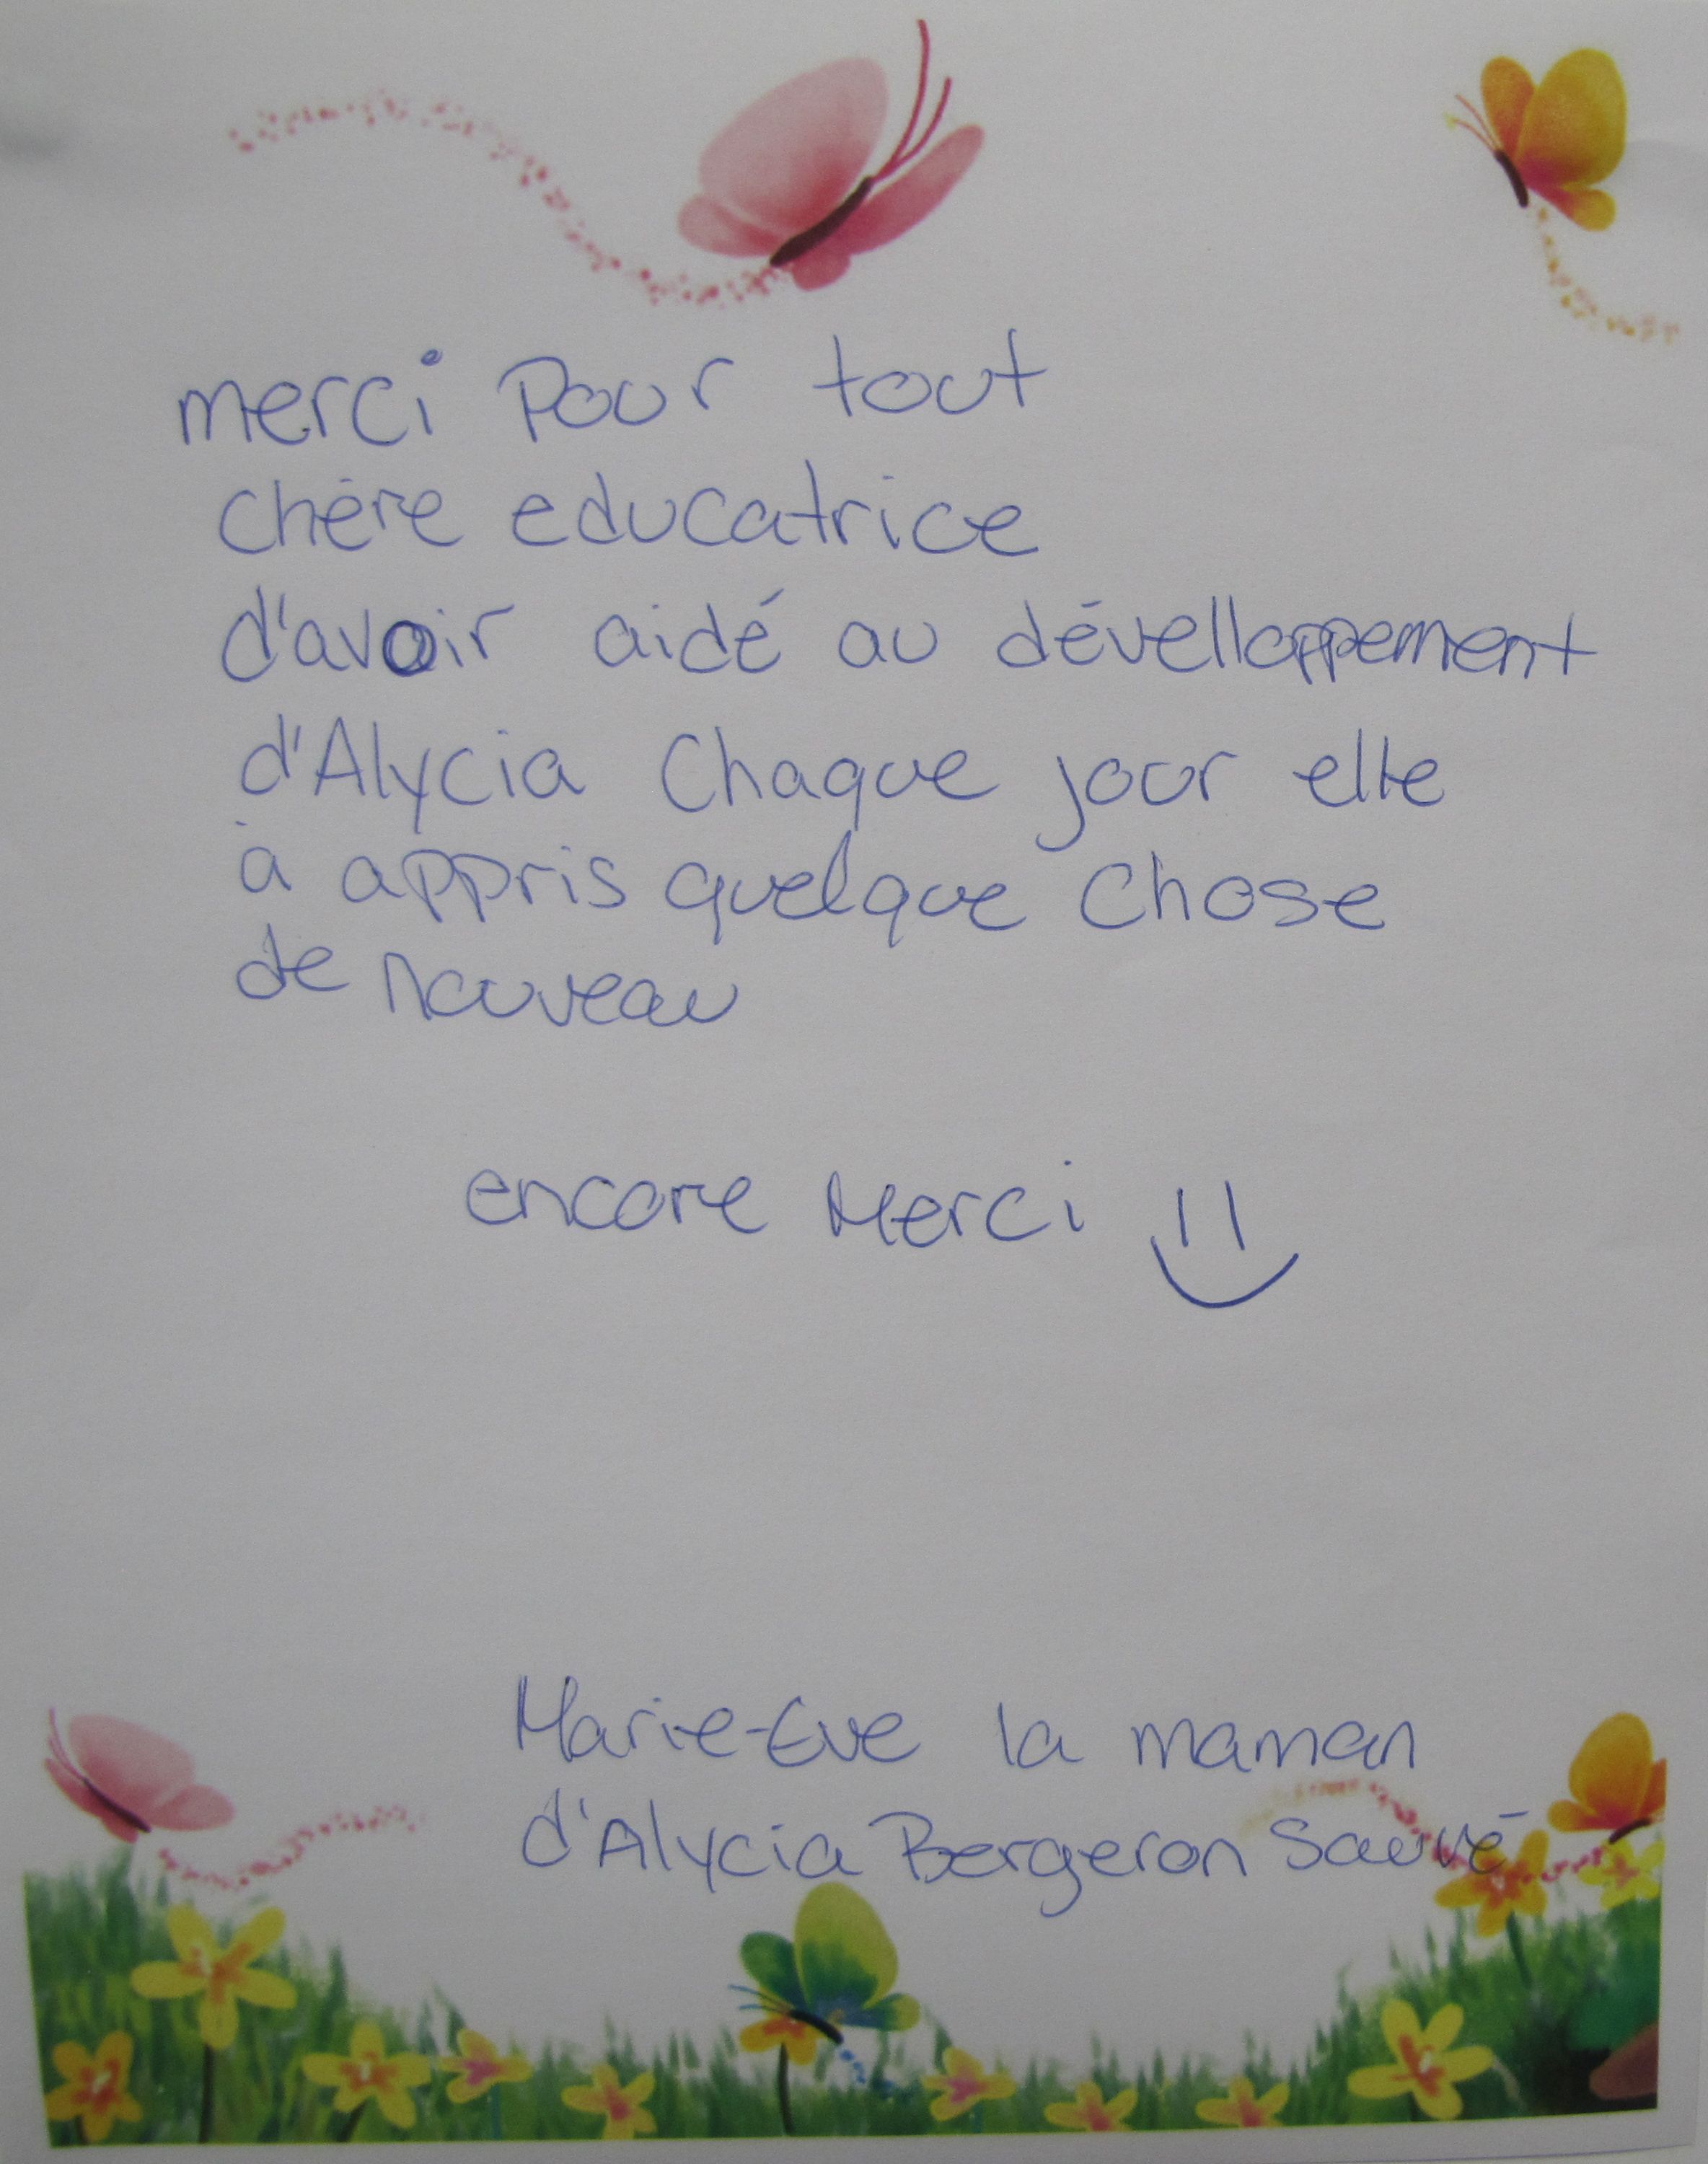 merci Pour tout
chère educatrice
d'avoir aidé au dévelloppement
d'Alycia Chaque jour elle
à appris quelque chose
de nouveau
encore Merci
Marie-Eve la maman
d'Alycia Bergeron Sauvé